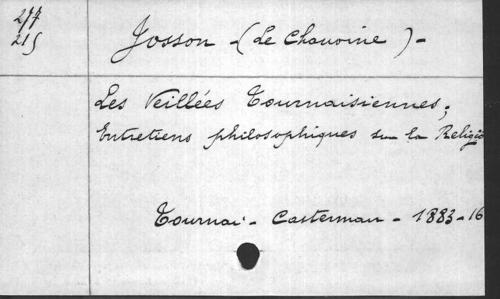 277
215
Josson - (Le Chanoine) -
Les Veillées Tournaisiennes;
Entretiens philosophiques sur la Religio
Tournai - Casterman - 1883 - 16